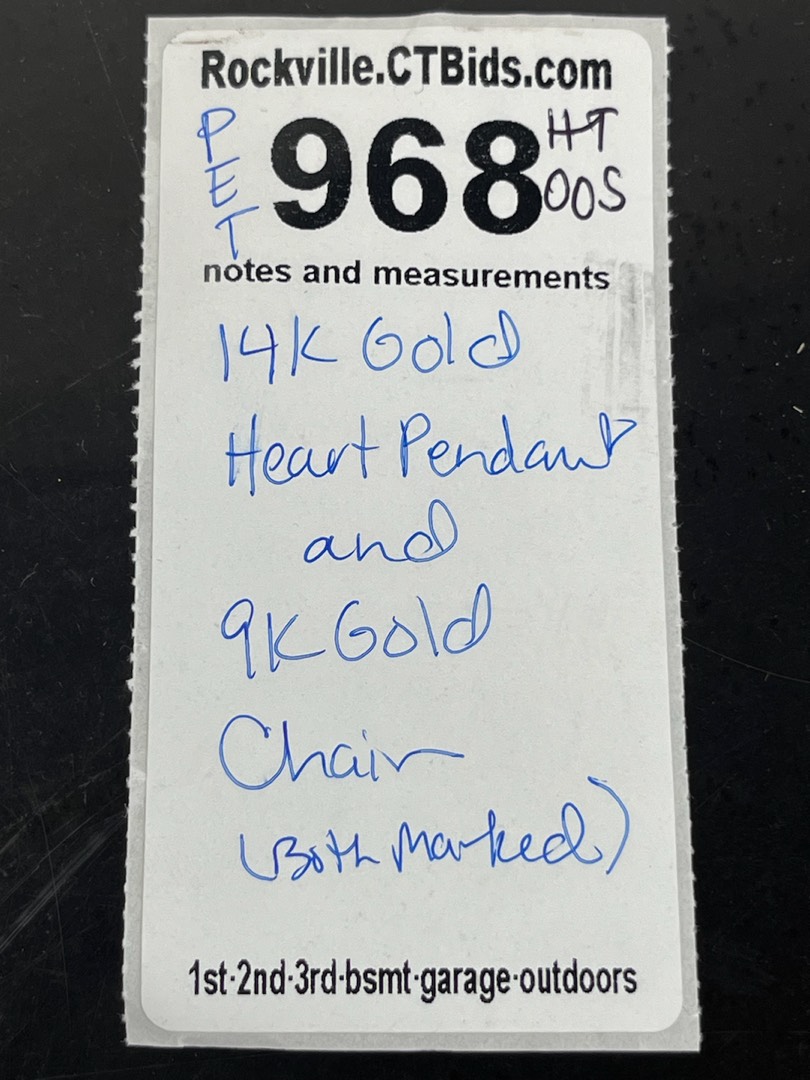 Rockville.CTBids.com
PET 968 HT
OOS
notes and measurements
14K Gold
Heart Pendant
and
9K Gold
Chain
(Both Marked)
1st·2nd·3rd·bsmt·garage·outdoors